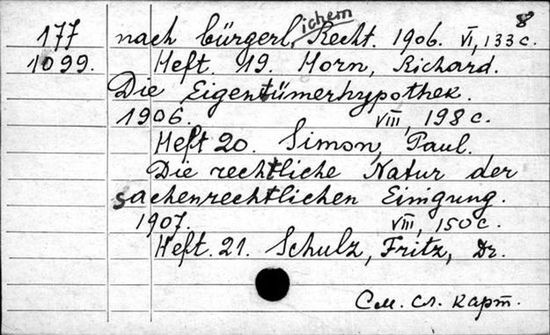 8
177 nach bürgerlichem Recht. 1906. VI, 133 с.
1099. Heft. 19. Horn, Richard.
Die Eigentümerhypothek.
1906. VIII, 198 с.
Heft 20. Simon, Paul.
Die rechtliche Natur der
sachenrechtlichen Einigung.
1907. VIII, 150 с.
Heft. 21. Schulz, Fritz, Dr.
См. сл. карт.